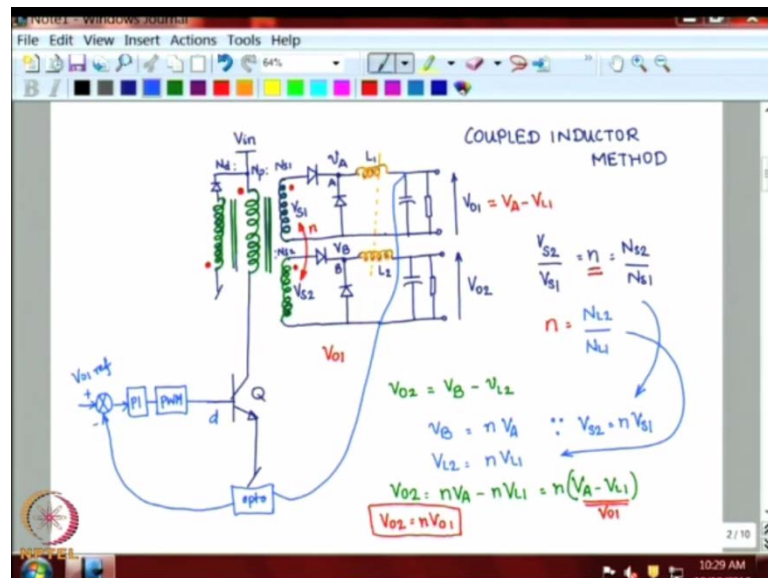 Note1 - Windows Journal
File Edit View Insert Actions Tools Help
64%
B I
COUPLED INDUCTOR
METHOD
Vin
Nd:
Np:
NS1
VA
L1
A
VS1
n
V01 = VA - VL1
:NS2
VB
B
L2
VS2
V02
V01
VS2/VS1 = n = NS2/NS1
n = NL2/NL1
V02 = VB - VL2
VB = n VA ∵ VS2 = n VS1
VL2 = n VL1
V02 = nVA - nVL1 = n(VA - VL1)
V01
V02 = nV01
V01 ref
+
-
PI
PWM
d
Q
opto
NPTEL
2 / 10
10:29 AM